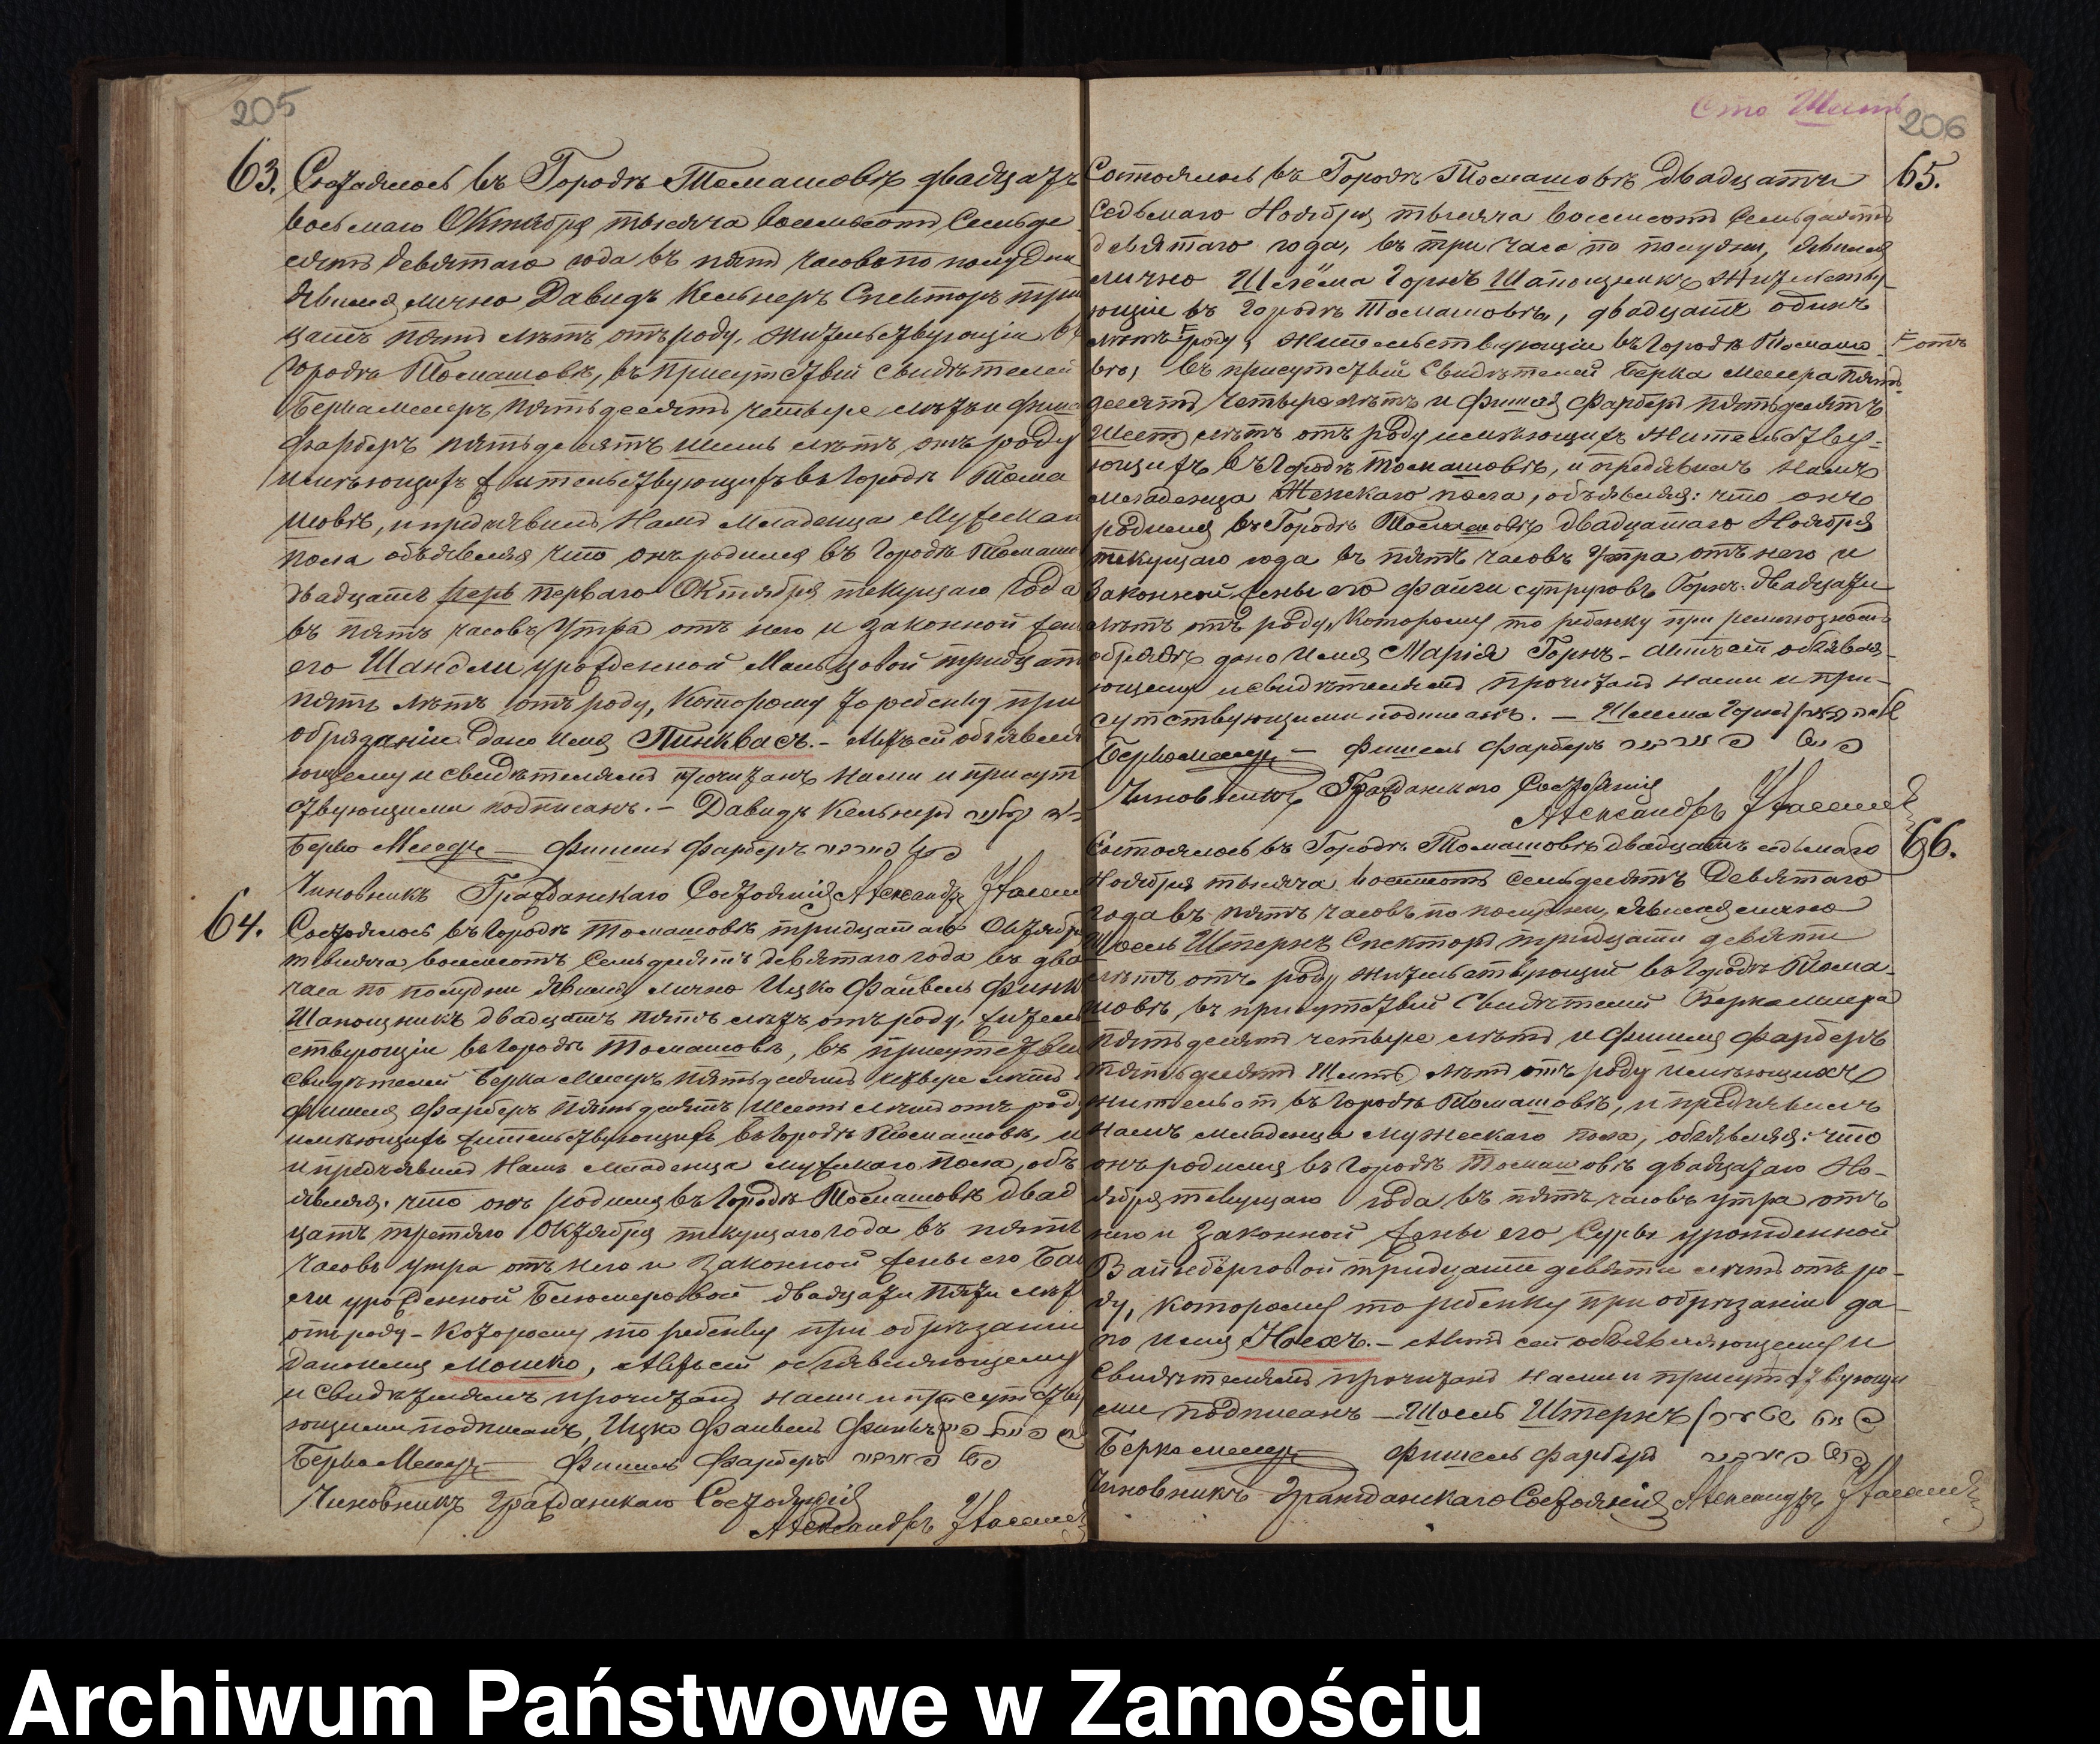 205
63. Состоялось въ Городѣ Томашовѣ двадцать
восьмаго Октября тысяча восемьсотъ семьде
сятъ девятаго года въ пять часовъ по полудни
явился лично Давидъ Кельнеръ Спекторъ трид
цать пять лѣтъ отъ роду, жительствующій въ
Городѣ Томашовѣ, въ присутствіи свидѣтелей
Берка Мелеръ пятьдесятъ четыре лѣтъ и Фишеля
Фарберъ пятьдесятъ шесть лѣтъ отъ роду
имѣющихъ жительствующихъ въ городѣ Тома
шовѣ, и предъявилъ намъ младенца мужескаго
пола объявляя что онъ родился въ городѣ Томашо
двадцать перь перваго Октября текущаго года
въ пять часовъ утра отъ него и законной жены
его Шандли урожденной Мальцовой тридцать
пять лѣтъ отъ роду, которому то ребенку при
обрѣзаніи дано имя Пинквасъ. - Актъ сей объявля
ющему и свидѣтелямъ прочитанъ нами и присут
ствующими подписанъ. - Давидъ Кельнеръ
Берко Мелеръ — Фишель Фарберъ
Чиновникъ Гражданскаго Состоянія Александръ
64. Состоялось въ городѣ Томашовѣ тридцатаго Октября
тысяча восемьсотъ семьдесятъ девятаго года въ два
часа по полудни явился лично Ицко Файвель Финкъ
Шапошникъ двадцать пять лѣтъ отъ роду, житель
ствующій въ городѣ Томашовѣ, въ присутствіи
свидѣтелей Берка Мелеръ пятьдесятъ четыре лѣтъ
Фишеля Фарберъ пятьдесятъ шесть лѣтъ отъ роду
имѣющихъ жительствующихъ въ городѣ Томашовѣ, и
и предъявилъ намъ младенца мужескаго пола, объ
являя: что онъ родился въ городѣ Томашовѣ двад
цать третяго Октября текущаго года въ пять
часовъ утра отъ него и законной жены его Бай
ли урожденной двадцати пяти лѣтъ
отъ роду - которому то ребенку при обрѣзаніи
дано имя Мошко, Актъ сей объявляющему
и свидѣтелямъ прочитанъ нами и присутству
ющими подписанъ, Ицко Файвель Финкъ
Берко Мелеръ — Фишель Фарберъ
Чиновникъ Гражданскаго Состоянія
Александръ
Сто Шесть
206
Состоялось въ Городѣ Томашовѣ двадцати 65.
седьмаго Ноября тысяча восемсотъ семьдесятъ
девятаго года, въ три часа по полудни, явился
лично Шлёма Горнъ Шапошникъ жительству
ющій въ городѣ Томашовѣ, двадцать одинъ
лѣтъ роду, жительствующій въ городѣ Томашо отъ
вѣ, въ присутствіи свидѣтелей Берка Мелера пять
десятъ четыре лѣтъ и Фишля Фарберъ пятьдесятъ
шесть лѣтъ отъ роду имѣющихъ жительству-
ющихъ въ городѣ Томашовѣ, и предъявилъ намъ
младенца Женскаго пола, объявляя: что онъ
родился въ Городѣ Томашовѣ двадцатаго Ноября
текущаго года въ пять часовъ утра отъ него и
законной жены его Файги супруговъ Горнъ двадцати
лѣтъ отъ роду, которому то ребенку при религіозномъ
обрядѣ дано имя Марія Горнъ - Актъ сей объявля-
ющему и свидѣтелямъ прочитанъ нами и при-
сутствующими подписанъ. — Шлема Горнъ
Берко Мелеръ — Фишель Фарберъ
Чиновникъ Гражданскаго Состоянія
Александръ
Состоялось въ Городѣ Томашовѣ двадцать седьмаго 66.
Ноября тысяча восемсотъ семьдесятъ девятаго
года въ пять часовъ по полудни, явился лично
Шоель Штернъ Спекторъ тридцати девяти
лѣтъ отъ роду, жительствующій въ городѣ Тома-
шовѣ, въ присутствіи свидѣтелей Берка Мелера
пятьдесятъ четыре лѣтъ и Фишля Фарберъ
пятьдесятъ шесть лѣтъ отъ роду имѣющихъ
жительст въ городѣ Томашовѣ, и предъявилъ
намъ младенца мужескаго пола, объявляя: что
онъ родился въ городѣ Томашовѣ двадцатаго Но-
ября текущаго года въ пять часовъ утра отъ
него и законной жены его Суры урожденной
Вайнберговой тридцати девяти лѣтъ отъ ро-
ду, которому то ребенку при обрѣзаніи да-
но имя Ноехъ. - Актъ сей объявляющему и
свидѣтелямъ прочитанъ нами и присутствующи
ми подписанъ - Шоель Штернъ
Берко Мелеръ — Фишель Фарберъ
Чиновникъ Гражданскаго Состоянія Александръ
Archiwum Państwowe w Zamościu